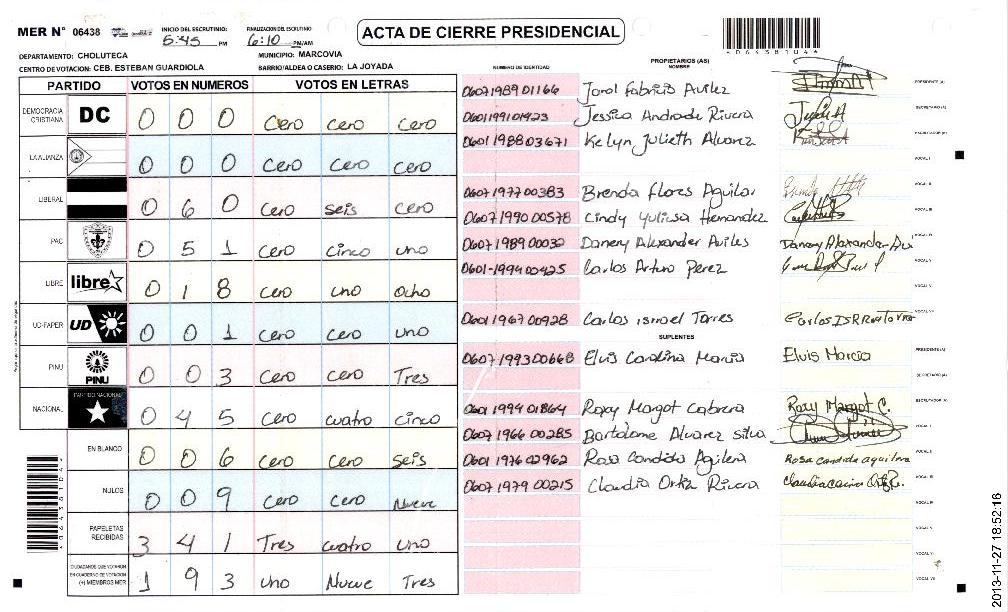 MER N° 06438 INICIO DEL ESCRUTINIO: 5:45 PM FINALIZACION DEL ESCRUTINIO 6:10 PM/AM
ACTA DE CIERRE PRESIDENCIAL
DEPARTAMENTO: CHOLUTECA MUNICIPIO: MARCOVIA
CENTRO DE VOTACION: CEB. ESTEBAN GUARDIOLA BARRIO/ALDEA O CASERIO: LA JOYADA
PARTIDO VOTOS EN NUMEROS VOTOS EN LETRAS
DEMOCRACIA CRISTIANA DC 0 0 0 Cero cero Cero
LA ALIANZA 0 0 0 Cero Cero Cero
LIBERAL 0 6 0 Cero seis cero
PAC 0 5 1 Cero Cinco uno
LIBRE libre 0 1 8 Cero uno Ocho
UD-FAPER UD 0 0 1 Cero Cero uno
PINU PINU 0 0 3 Cero Cero Tres
NACIONAL PARTIDO NACIONAL 0 4 5 Cero cuatro cinco
EN BLANCO 0 0 6 Cero Cero Seis
NULOS 0 0 9 Cero Cero Nueve
PAPELETAS RECIBIDAS 3 4 1 Tres cuatro uno
CIUDADANOS QUE VOTARON EN CUADERNO DE VOTACION (+) MIEMBROS MER 1 9 3 uno Nueve Tres
NUMERO DE IDENTIDAD PROPIETARIOS (AS) NOMBRE
0607198901166 Jorol Fabricio Avilez PRESIDENTE(A)
0601199101423 Jessica Andrade Rivera SECRETARIO(A)
0601198803671 Kelyn Julieth Alvarez ESCRUTADOR(A)
VOCAL I
0607197700383 Brenda Flores Aguilar VOCAL II
0607199000578 Cindy Yulissa Hernandez VOCAL III
0607198900032 Danery Alexander Aviles Danery Alexander Avi VOCAL IV
0601-1994-00425 Carlos Arturo Perez
VOCAL V
0601196700928 Carlos ismael Torres Carlos ISRRaelTorres VOCAL VI
SUPLENTES
0607199300668 Elvis Carolina Marcia Elvis Marcia PRESIDENTE(A)
SECRETARIO(A)
0601199401864 Roxy Margot Cabrera Roxy Margot C. ESCRUTADOR(A)
0607196600285 Bartolome Alvarez Silva VOCAL I
0601197602962 Rosa Candida Aguilera Rosa candida aguilera VOCAL II
0607197900215 Claudia Ortiz Rivera VOCAL III
VOCAL IV
VOCAL V
VOCAL VI
VOCAL VII
2013-11-27 18:52:16